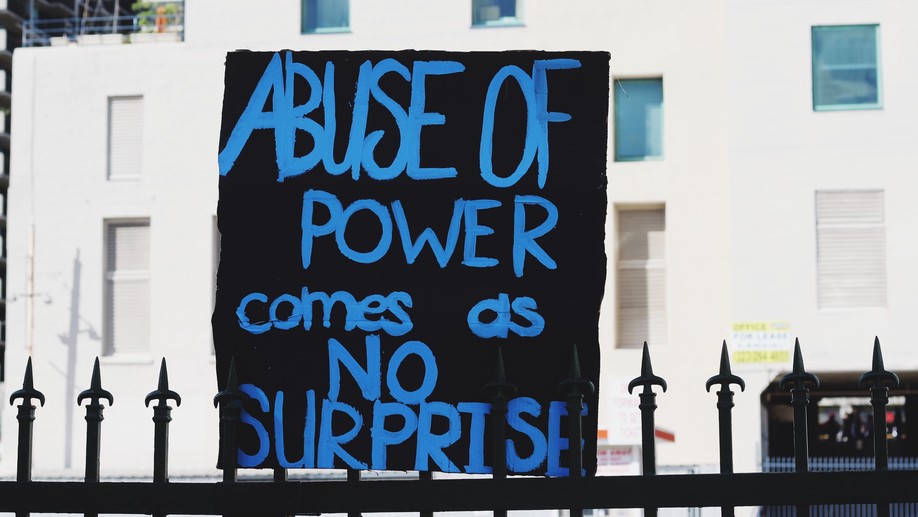 ABUSE OF
POWER
comes as
NO
SURPRISE
OFFICE
FOR LEASE